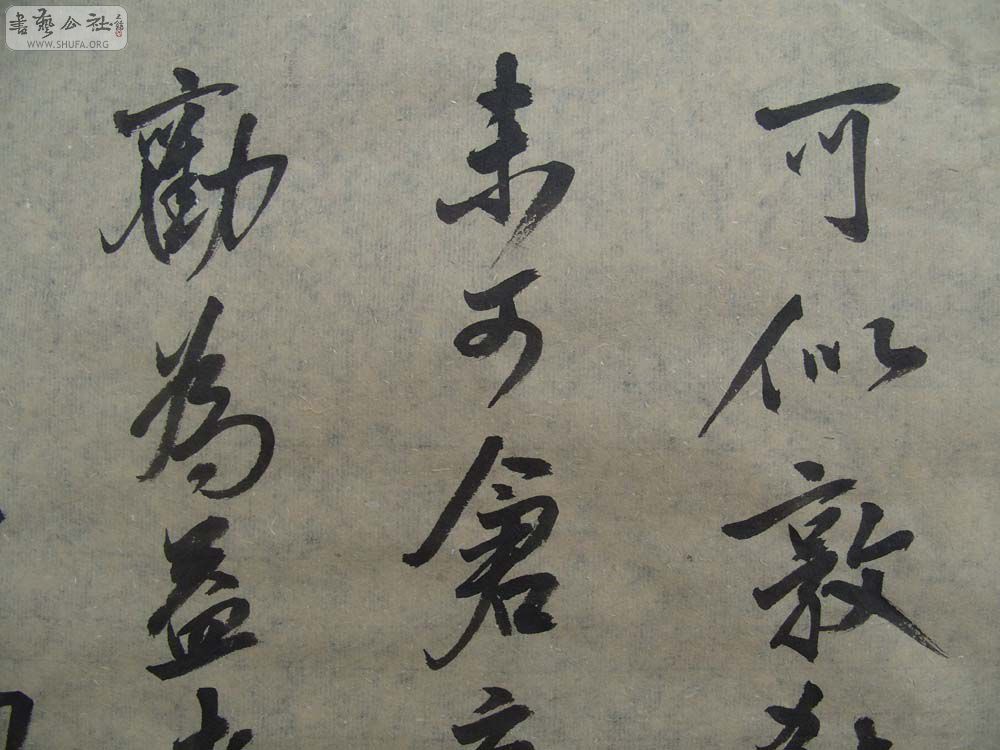 書藝公社
WWW.SHUFA.ORG
可似敦
未可倉
勸為益